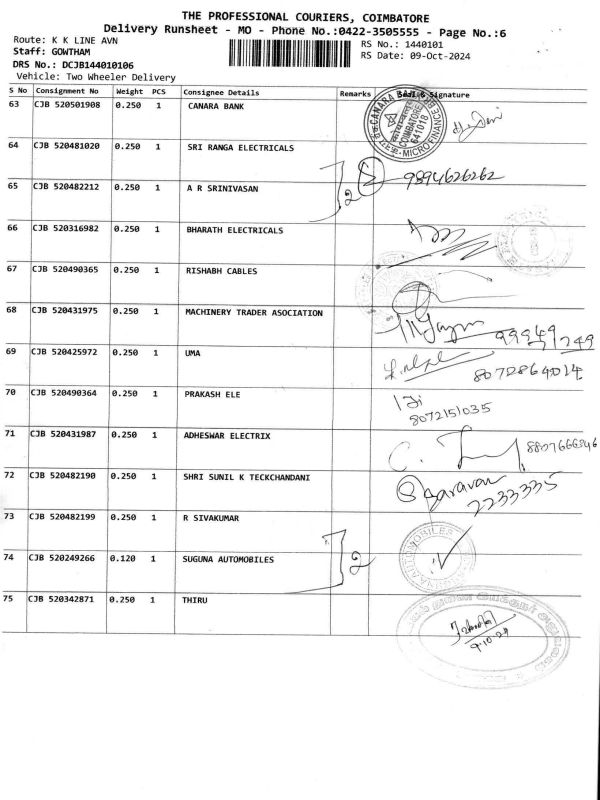 THE PROFESSIONAL COURIERS, COIMBATORE
Delivery Runsheet - MO - Phone No.:0422-3505555 - Page No.:6
Route: K K LINE AVN
Staff: GOWTHAM
DRS No.: DCJB144010106
Vehicle: Two Wheeler Delivery
RS No.: 1440101
RS Date: 09-Oct-2024
S No Consignment No Weight PCS Consignee Details Remarks Seal & Signature
63 CJB 520501908 0.250 1 CANARA BANK
CANARA BA
COIMBATORE
641018
MICROFINANCE BR
64 CJB 520481020 0.250 1 SRI RANGA ELECTRICALS
2 9894626262
65 CJB 520482212 0.250 1 A R SRINIVASAN
66 CJB 520316982 0.250 1 BHARATH ELECTRICALS
67 CJB 520490365 0.250 1 RISHABH CABLES
68 CJB 520431975 0.250 1 MACHINERY TRADER ASOCIATION
69 CJB 520425972 0.250 1 UMA
8072864014
70 CJB 520490364 0.250 1 PRAKASH ELE
8072151035
71 CJB 520431987 0.250 1 ADHESWAR ELECTRIX
72 CJB 520482190 0.250 1 SHRI SUNIL K TECKCHANDANI
Saravan
2233335
73 CJB 520482199 0.250 1 R SIVAKUMAR
74 CJB 520249266 0.120 1 SUGUNA AUTOMOBILES
2
75 CJB 520342871 0.250 1 THIRU
9-10-24